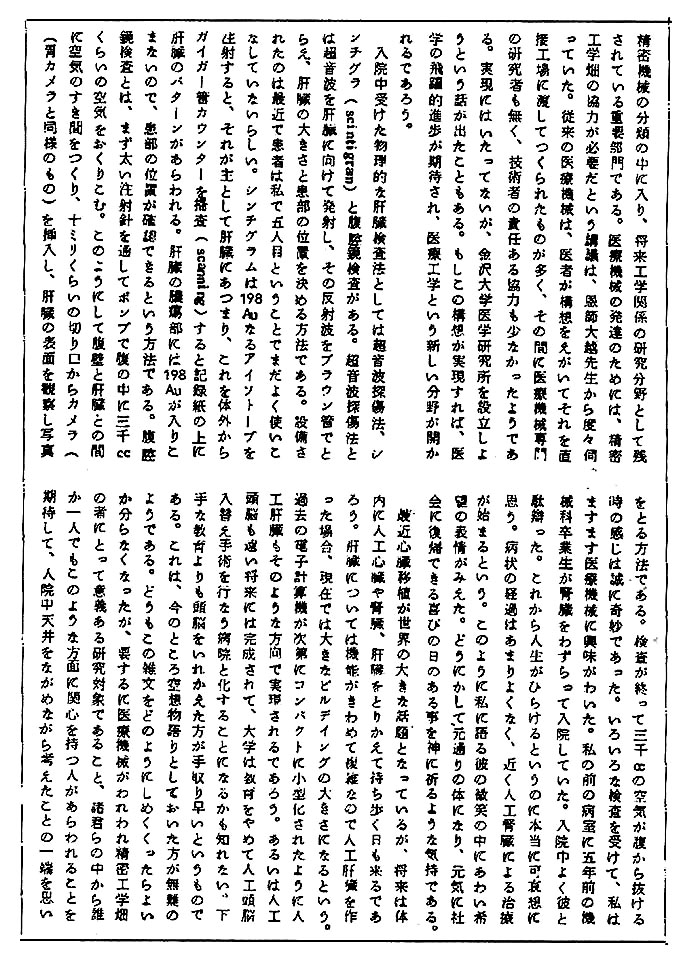 精密機械の分類の中に入り、将来工学関係の研究分野として残
されている重要部門である。医療機械の発達のためには、精密
工学畑の協力が必要だという講議は、恩師大越先生から度々伺
っていた。従来の医療機械は、医者が構想をえがいてそれを直
接工場に渡してつくられたものが多く、その間に医療機械専門
の研究者も無く、技術者の責任ある協力も少なかったようであ
る。実現にはいたってないが、金沢大学医学研究所を設立しよ
うという話が出たこともある。もしこの構想が実現すれば、医
学の飛躍的進歩が期待され、医療工学という新しい分野が開か
れるであろう。
入院中受けた物理的な肝臓検査法としては超音波探傷法、シ
ンチグラ(scintigram)と腹腔鏡検査がある。超音波探傷法と
は超音波を肝臓に向けて発射し、その反射波をブラウン管でと
らえ、肝臓の大きさと患部の位置を決める方法である。設備さ
れたのは最近で患者は私で五人目ということでまだよく使いこ
なしていないらしい。シンチグラムは198Auなるアイソトープを
注射すると、それが主として肝臓にあつまり、これを体外から
ガイガー管カウンターを搭査(scanning)すると記録紙の上に
肝臓のパターンがあらわれる。肝臓の腫瘍部には198Auが入りこ
まないので、患部の位置が確認できるという方法である。腹腔
鏡検査とは、まず太い注射針を通してポンプで腹の中に三千cc
くらいの空気をおくりこむ。このようにして腹壁と肝臓との間
に空気のすき間をつくり、十ミリくらいの切り口からカメラ(
(胃カメラと同様のもの)を挿入し、肝臓の表面を観察し写真
をとる方法である。検査が終って三千ccの空気が腹から抜ける
時の感じは誠に奇妙であった。いろいろな検査を受けて、私は
ますます医療機械に興味がわいた。私の前の病室に五年前の機
械科卒業生が腎臓をわずらって入院していた。入院中よく彼と
駄辯った。これから人生がひらけるというのに本当に可哀想に
思う。病状の経過はあまりよくなく、近く人工腎臓による治療
が始まるという。このように私に語る彼の微笑の中にあわい希
望の表情がみえた。どうにかして元通りの体になり、元気に社
会に復帰できる喜びの日のある事を神に祈るような気持である。
最近心臓移植が世界の大きな話題となっているが、将来は体
内に人工心臓や腎臓、肝臓をとりかえて持ち歩く日も来るであ
ろう。肝臓については機能がきわめて複雑なので人工肝臓を作
った場合、現在では大きなビルデイングの大きさになるという。
過去の電子計算機が次第にコンパクトに小型化されたように人
工肝臓もそのような方向で実現されるであろう。あるいは人工
頭脳も遠い将来には完成されて、大学は教育をやめて人工頭脳
入替え手術を行なう病院と化することになるかも知れない。下
手な教育よりも頭脳をいれかえた方が手取り早いというもので
ある。これは、今のところ空想物語りとしておいた方が無難の
ようである。どうもこの雑文をどのようにしめくくったらよい
か分らなくなったが、要するに医療機械がわれわれ精密工学畑
の者にとって意義ある研究対象であること、諸君らの中から誰
か一人でもこのような方面に関心を持つ人があらわれることを
期待して、入院中天井をながめながら考えたことの一端を思い